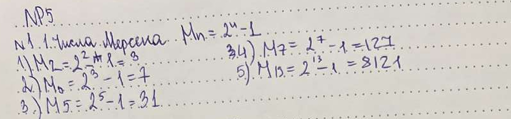 №P5
№1.1. Числа Мерсена Mn = 2ⁿ - 1
1) M2 = 2² - 1 = 3
2) M3 = 2³ - 1 = 7
3) M5 = 2⁵ - 1 = 31
3.4) M7 = 2⁷ - 1 = 127
5) M13 = 2¹³ - 1 = 8121